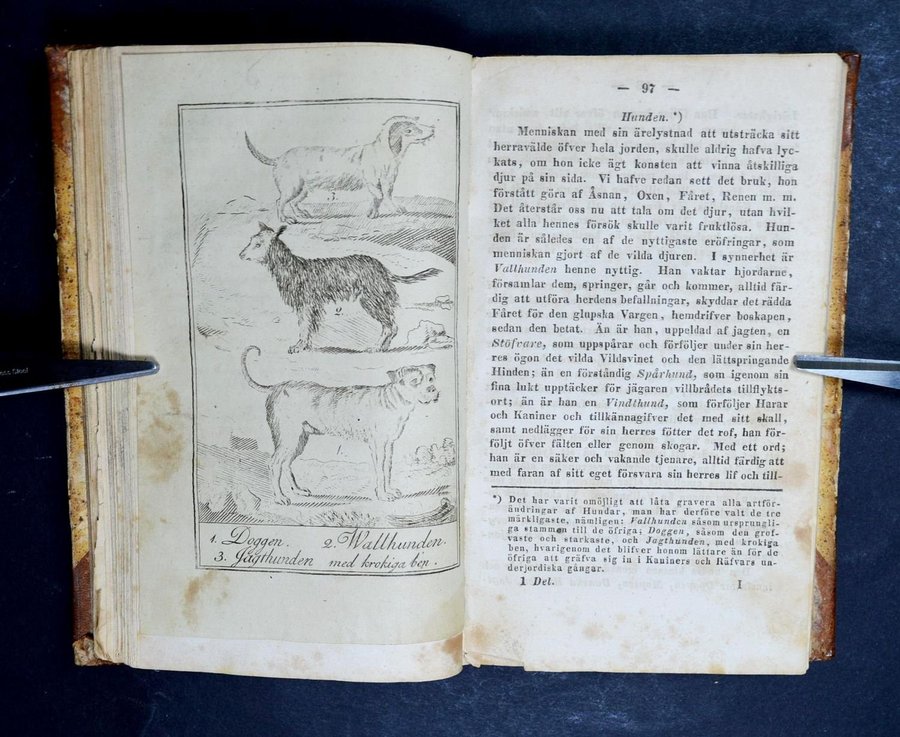 3.
2.
1.
1. Doggen. 2. Wallhunden.
3. Jagthunden med krokiga ben.
— 97 —
Hunden. *)
Menniskan med sin ärelystnad att utsträcka sitt
herravälde öfver hela jorden, skulle aldrig hafva lyc-
kats, om hon icke ägt konsten att vinna åtskilliga
djur på sin sida. Vi hafve redan sett det bruk, hon
förstått göra af Åsnan, Oxen, Fåret, Renen m. m.
Det återstår oss nu att tala om det djur, utan hvil-
ket alla hennes försök skulle varit fruktlösa. Hun-
den är således en af de nyttigaste eröfringar, som
menniskan gjort af de vilda djuren. I synnerhet är
Vallhunden henne nyttig. Han vaktar hjordarne,
församlar dem, springer, går och kommer, alltid fär-
dig att utföra herdens befallningar, skyddar det rädda
Fåret för den glupska Vargen, hemdrifver boskapen,
sedan den betat. Än är han, uppeldad af jagten, en
Stöfvare, som uppspårar och förföljer under sin her-
res ögon det vilda Vildsvinet och den lättspringande
Hinden; än en förståndig Spårhund, som igenom sin
fina lukt upptäcker för jägaren villbrådets tillflykts-
ort; än är han en Vindthund, som förföljer Harar
och Kaniner och tillkännagifver det med sitt skall,
samt nedlägger för sin herres fötter det rof, han för-
följt öfver fälten eller genom skogar. Med ett ord;
han är en säker och vakande tjenare, alltid färdig att
med faran af sitt eget försvara sin herres lif och till-
*) Det har varit omöjligt att låta gravera alla artför-
ändringar af Hundar, man har derföre valt de tre
märkligaste, nämligen: Vallhunden såsom ursprungli-
ga stammen till de öfriga; Doggen, såsom den grof-
vaste och starkaste, och Jagthunden, med krokiga
ben, hvarigenom det blifver honom lättare än för de
öfriga att gräfva sig in i Kaniners och Räfvars un-
derjordiska gångar.
1 Del. I